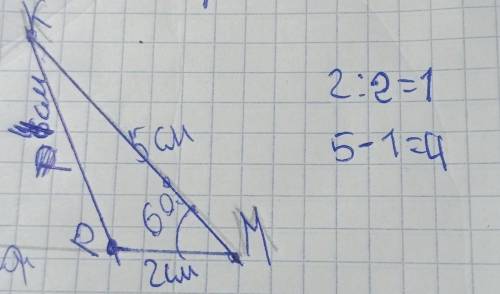 K
5 см
60°
P
M
2см
2:2=1
5-1=4